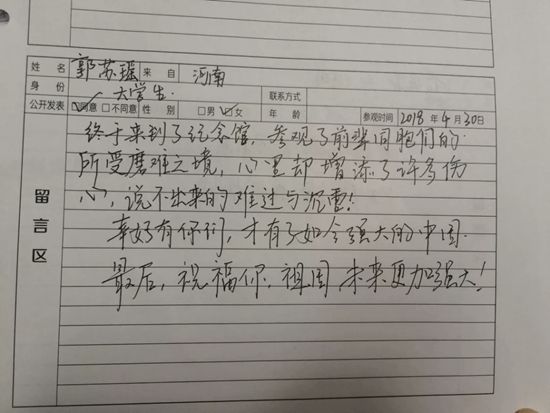 姓名 郭苏瑶 来自 河南
身份 大学生 联系方式
公开发表 ☑同意 □不同意 性别 □男 ☑女 年龄 参观时间 2018年4月30日
留言区
终于来到了纪念馆，参观了前辈同胞们的
所受磨难之境，心里却增添了许多伤
心，说不出来的难过与沉重！
幸好有你们，才有了如今强大的中国.
最后，祝福你，祖国，未来更加强大！